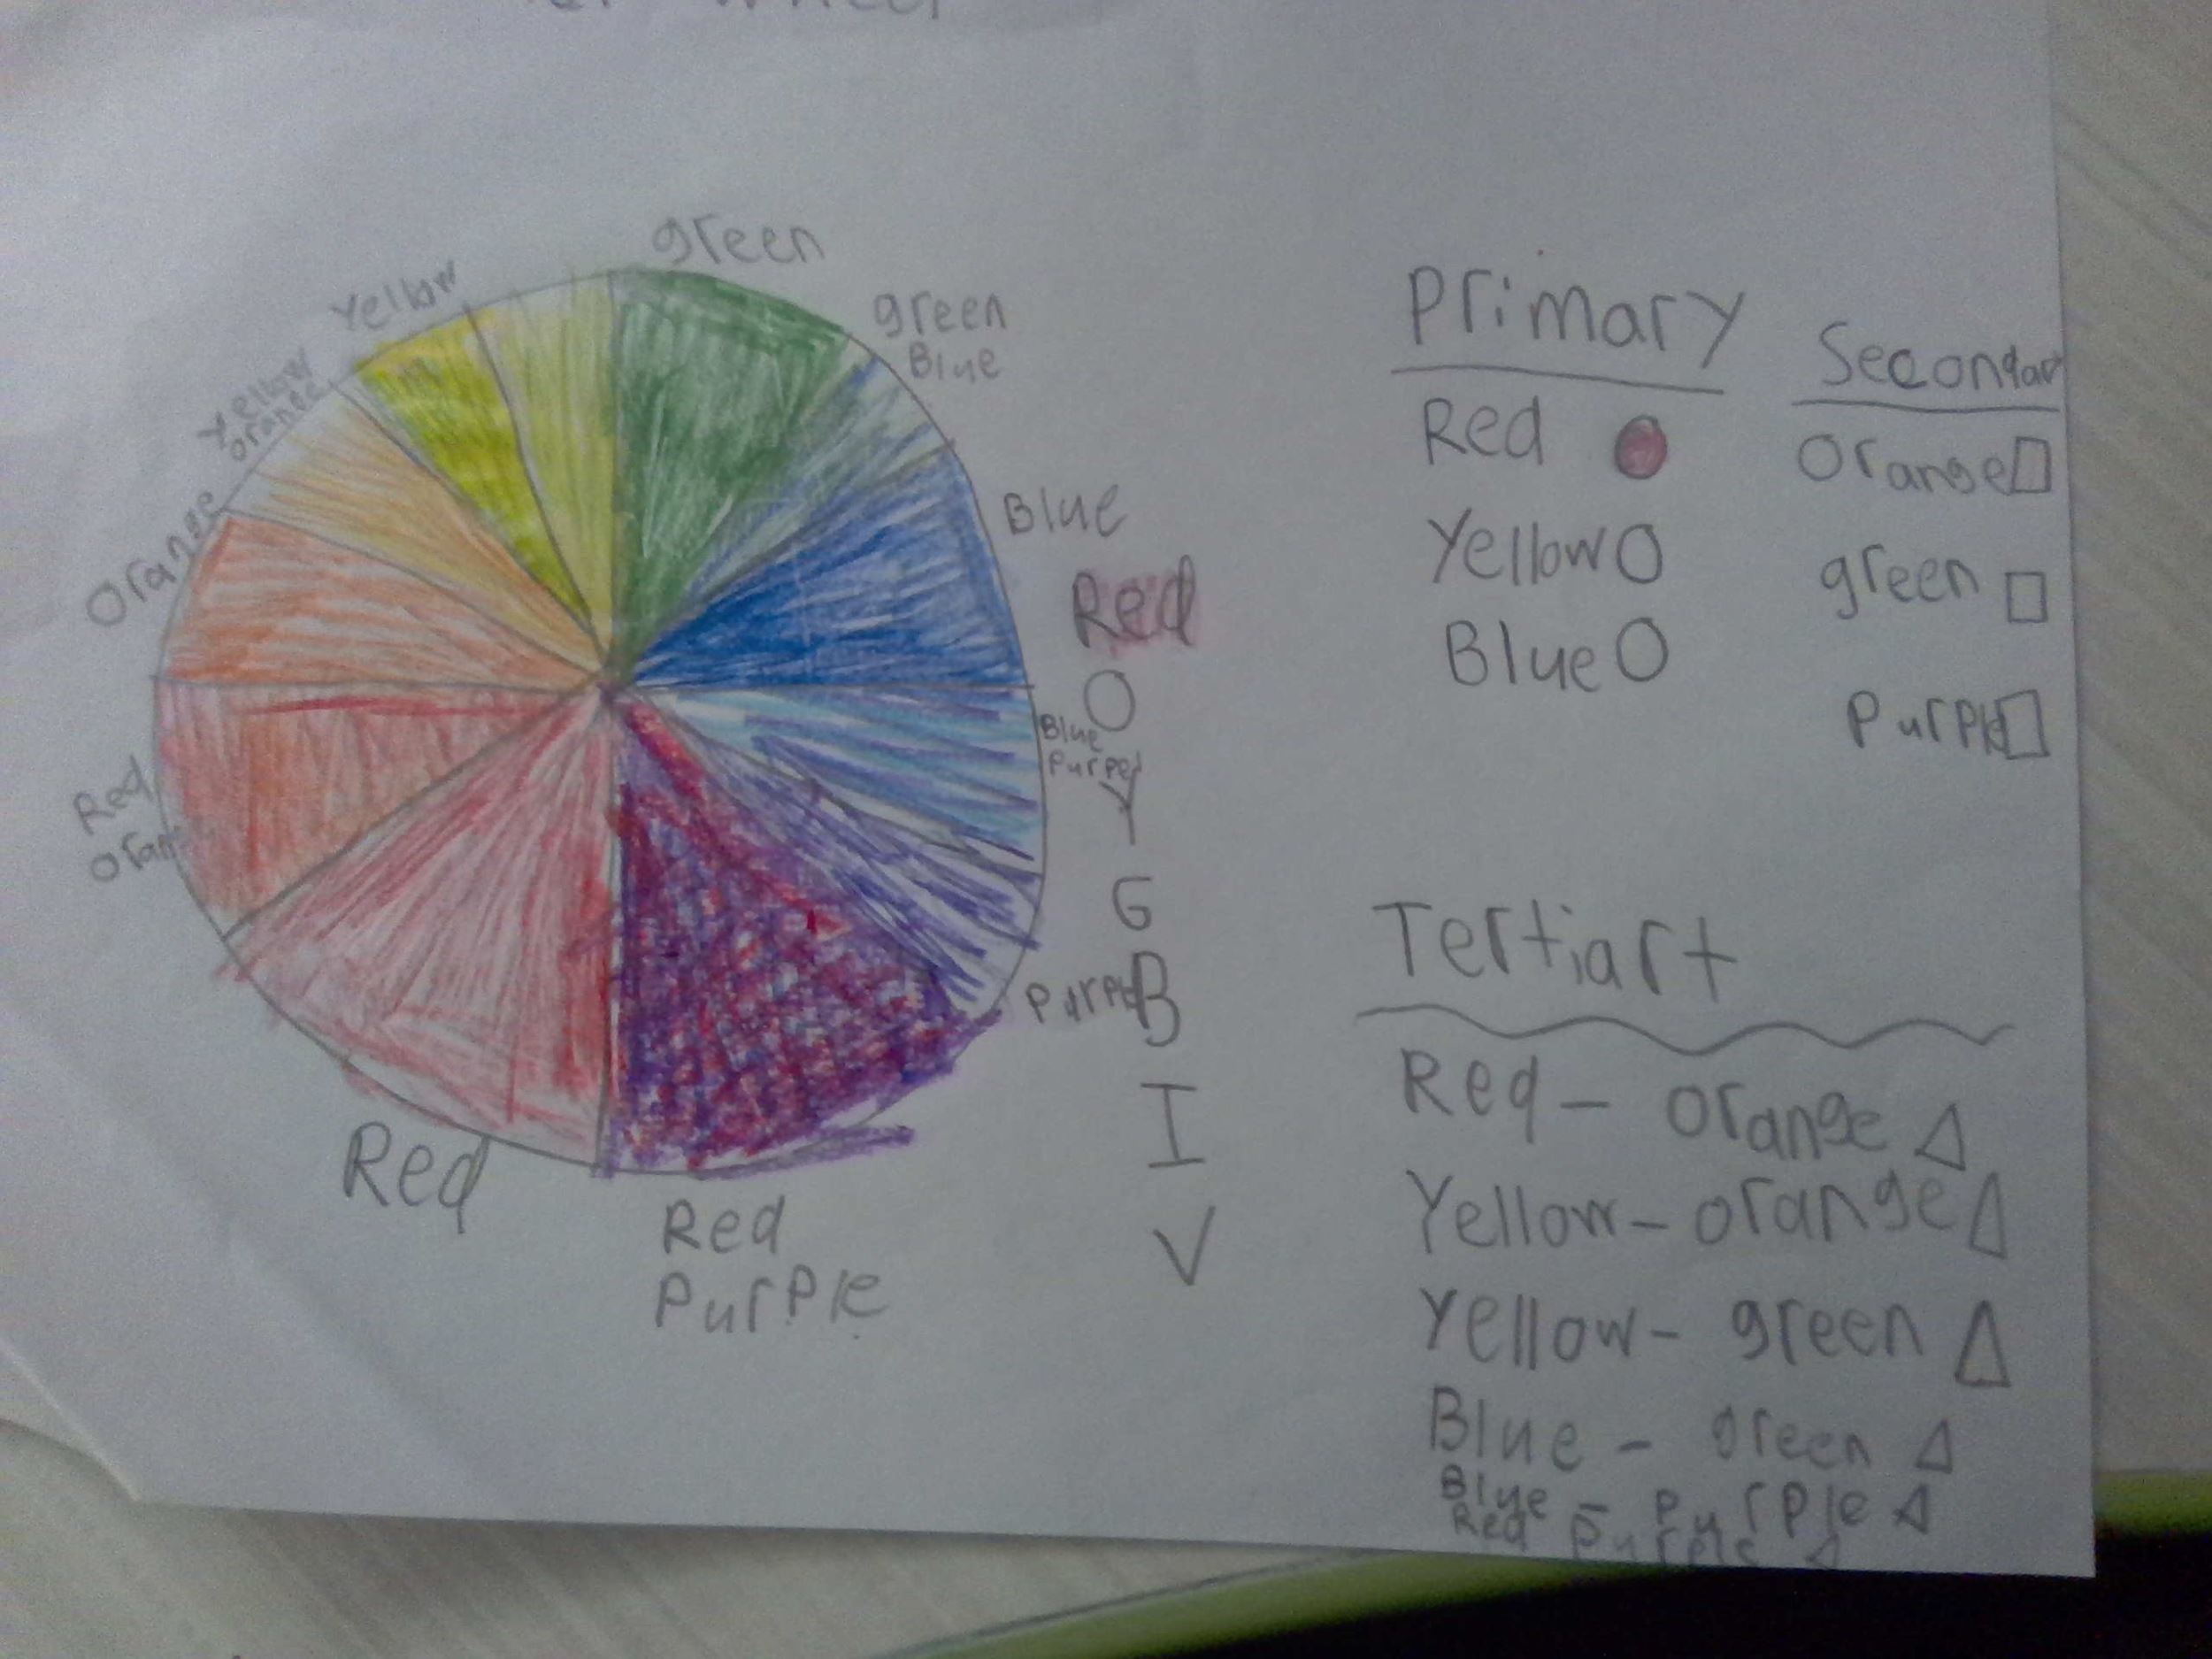 Wheel
green
green
Blue
Yellow
Yellow
orange
Orange
Blue
Red
O
Blue
Y
G
B
I
V
Red
Red
Red
Purple
Primary
Red
Yellow
Blue
Orange
green
Tertiart
Red - orange
Yellow - orange
Yellow - green
Blue - green
Blue - Purple
Red Purple